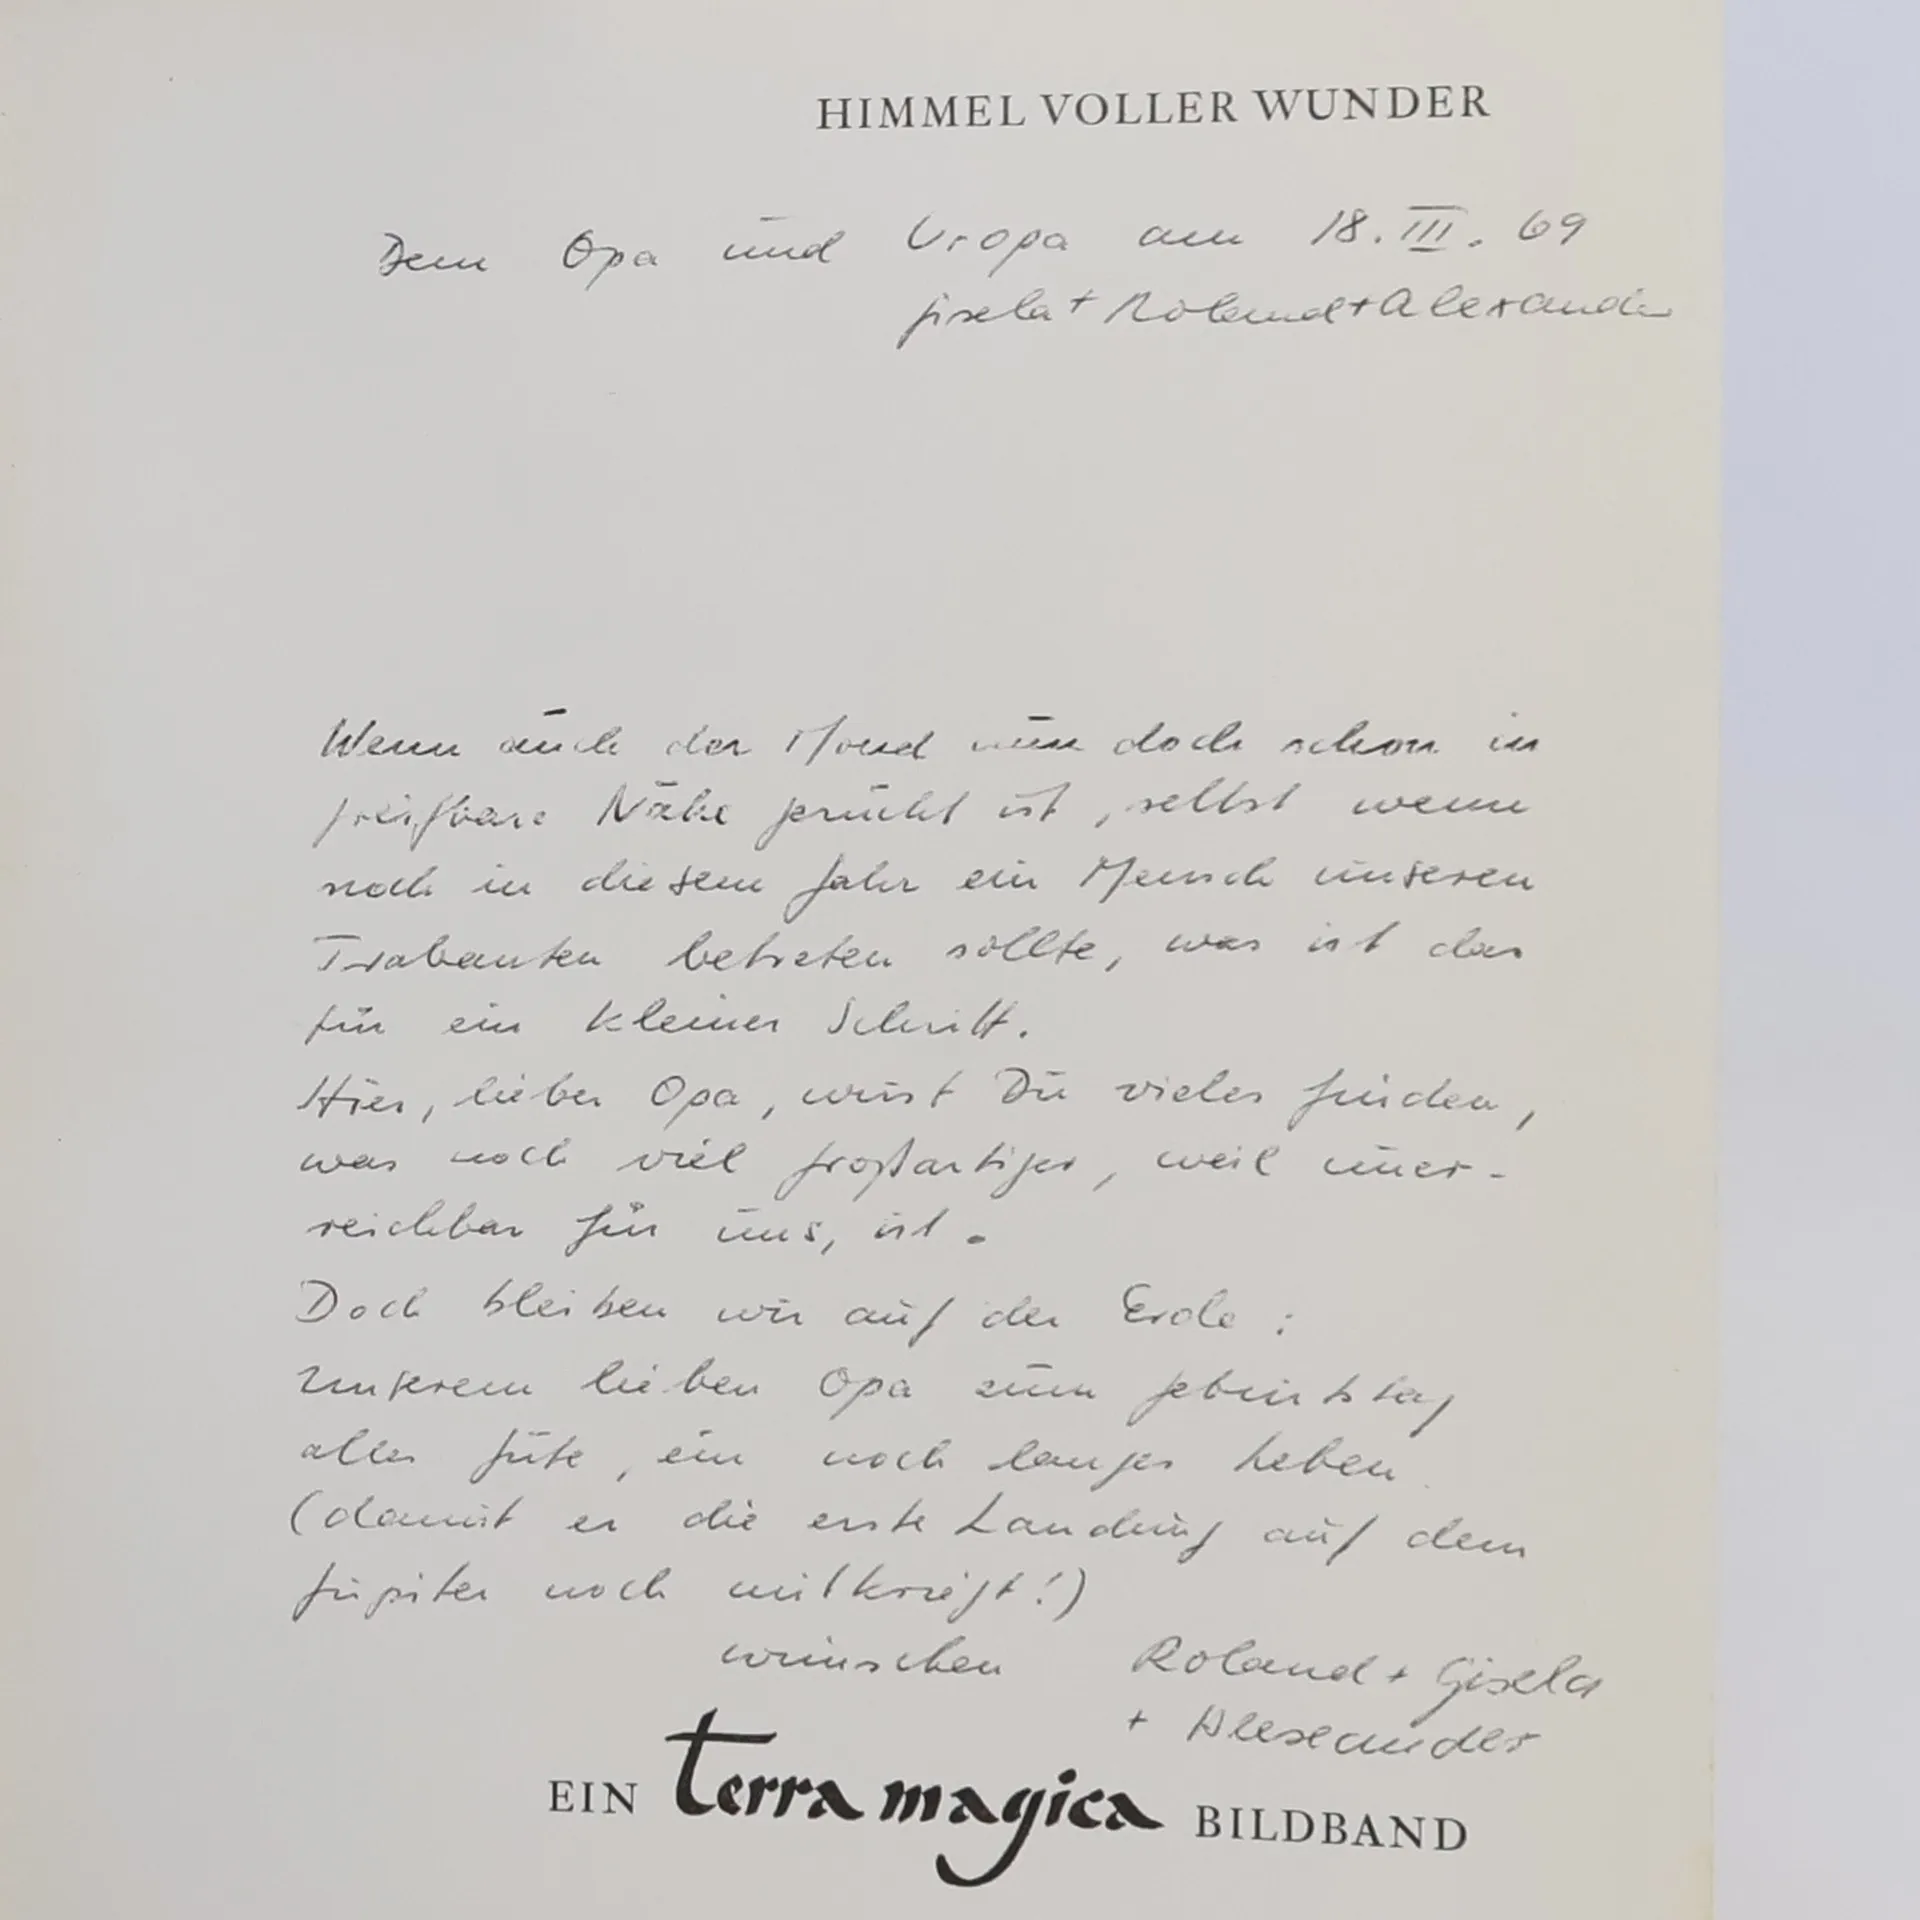 HIMMEL VOLLER WUNDER
Dem Opa und Uropa am 18. III. 69
Gisela + Roland + Alexander
Wenn auch der Mond nun doch schon in
greifbare Nähe gerückt ist, selbst wenn
noch in diesem Jahr ein Mensch unseren
Trabanten betreten sollte, was ist das
für ein kleiner Schritt.
Hier, lieber Opa, wirst Du vieles finden,
was noch viel großartiger, weil uner-
reichbar für uns, ist.
Doch bleiben wir auf der Erde:
Unserem lieben Opa zum Geburtstag
alles Gute, ein noch langes Leben
(damit er die erste Landung auf dem
Jupiter noch mitkriegt!)
wünschen Roland + Gisela
+ Alexander
EIN terra magica BILDBAND